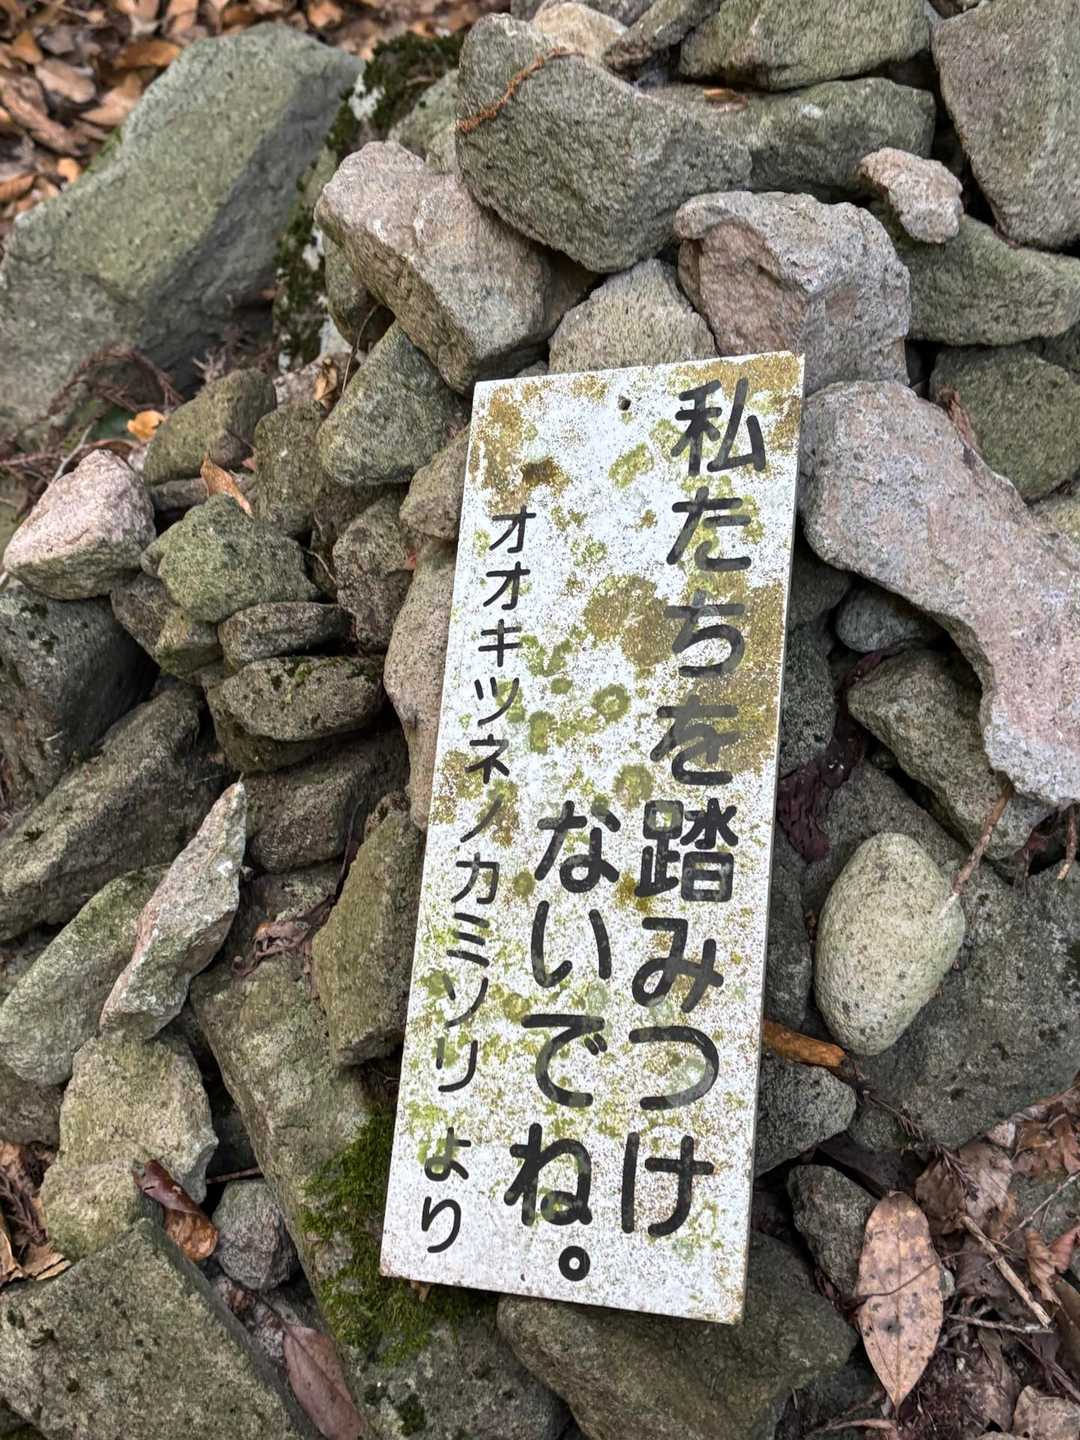 私たちを踏みつけ
ないでね。
オオキツネノカミソリより